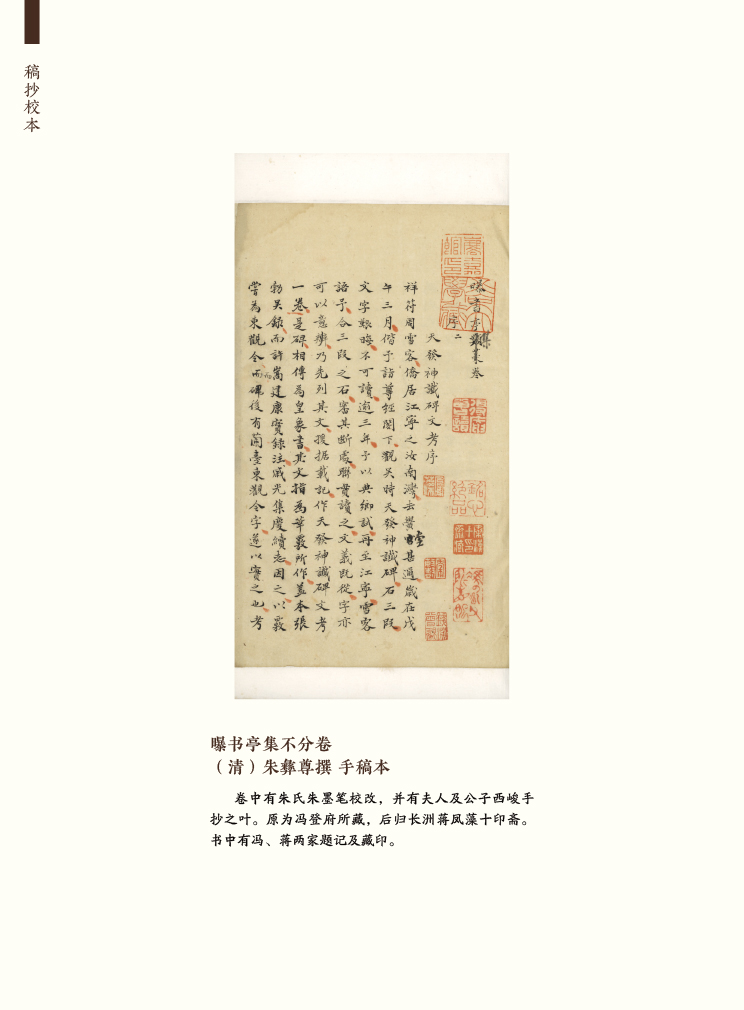 稿抄校本
曝書亭集卷
序二
天發神讖碑文考序
祥符周雪客僑居江寧之汝南灣去黌舍甚邇歲在戊
午三月偕予詣尊經閣下觀吴時天發神讖碑石三段
文字艱晦不可讀逾三年予以典鄉試再至江寧雪客
語予合三段之石審其斷處聯貫讀之文義既從字亦
可以意辨乃先列其文援据載記作天發神讖碑文考
一卷是碑相傳為皇象書其文指為華覈所作蓋本張
勃吴録而許嵩建康實録注戚光集慶續志因之以覈
嘗為東觀令而碑後有蘭臺東觀令字遂以實之也考
曝书亭集不分卷
（清）朱彝尊撰 手稿本
卷中有朱氏朱墨笔校改，并有夫人及公子西峻手
抄之叶。原为冯登府所藏，后归长洲蒋凤藻十印斋。
书中有冯、蒋两家题记及藏印。